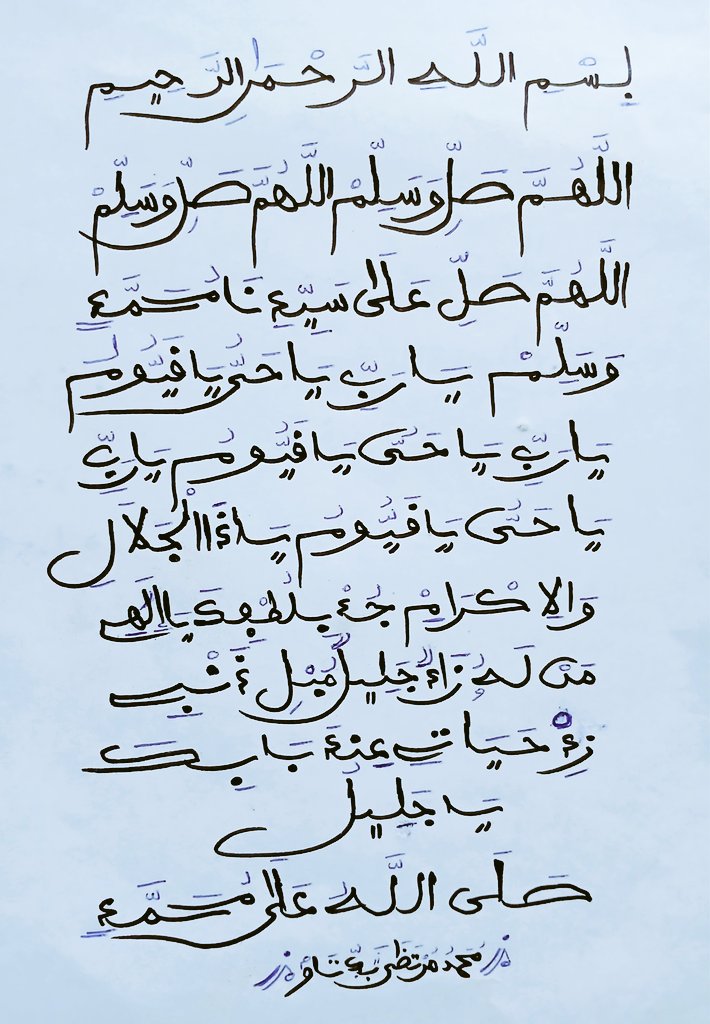 بِسْمِ اللَّهِ الرَّحْمَنِ الرَّحِيمِ
اللَّهُمَّ صَلِّ وَسَلِّمْ اللَّهُمَّ صَلِّ وَسَلِّمْ
اللَّهُمَّ صَلِّ عَلَى سَيِّدِنَا مُحَمَّدٍ
وَسَلِّمْ يَا رَبِّ يَا حَيُّ يَا قَيُّومُ
يَا رَبِّ يَا حَيُّ يَا قَيُّومُ يَا رَبِّ
يَا حَيُّ يَا قَيُّومُ يَا ذَا الْجَلَالِ
وَالإِكْرَامْ جُدْ بِلُطْفِكَ يَا إِلَهِي
مَن لَهُ زَادٌ جَلِيلُ
حَيَاتِي عِنْدَ بَابِكَ
يَا جَلِيلُ
صَلَّى اللَّهُ عَلَى مُحَمَّدٍ
مُحَمَّدُ مُرْتَضَى